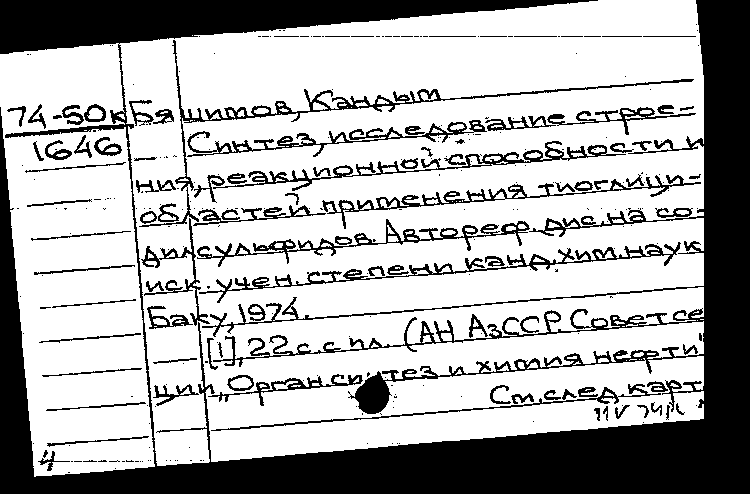 74-50к Бяшимов, Кандым
1646 Синтез, исследование строе-
ния, реакционной способности и
областей применения тиоглици-
дилсульфидов. Автореф. дис. на со-
иск. учен. степени канд. хим. наук
Баку, 1974.
[1], 22 с. с ил. (АН АзССР. Совет се
ции „Орган. синтез и химия нефти"
См. след. карт
4